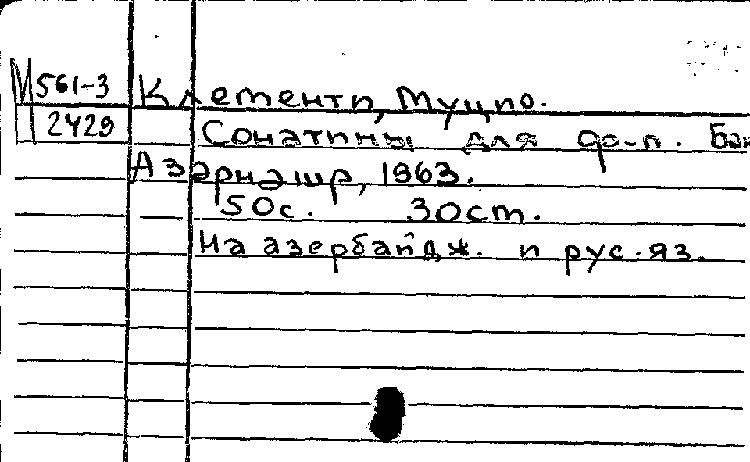 М 561-3 Клементи, Муцио.
2429 Сонатины для фо-п. Бак
Азәрнәшр, 1963.
50с. 30 ст.
На азербайдж. и рус. яз.